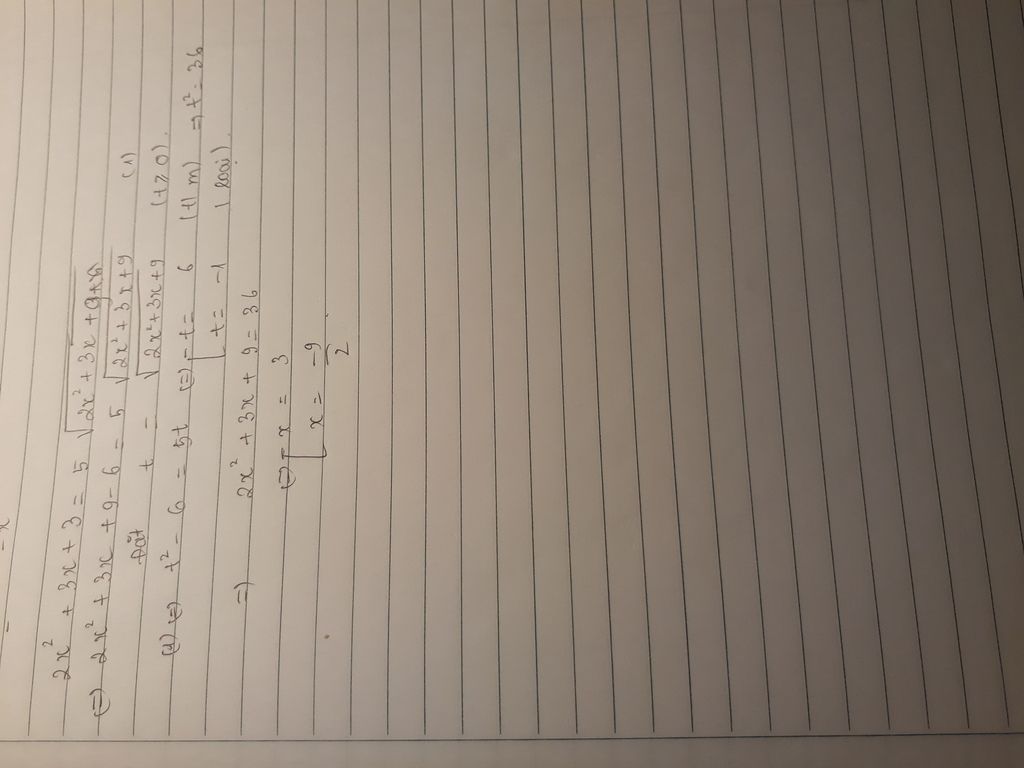 2x² + 3x + 3 = 5 √2x² + 3x + 9
(=) 2x² + 3x + 9 - 6 = 5 √2x² + 3x + 9 (1)
Đặt t = √2x²+3x+9 (t ≥ 0)
(1) (=) t² - 6 = 5t (=) [ t = 6 (t/m) => t² = 36
t = -1 (loại)
=) 2x² + 3x + 9 = 36
(=) [ x = 3
x = -9/2